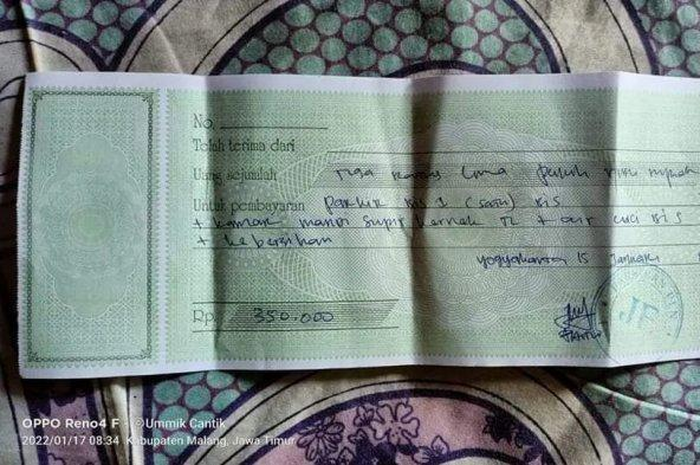 No.
Telah terima dari
Uang sejumlah tiga ratus lima puluh ribu rupiah
Untuk pembayaran parkir bis 1 (satu) bis
+ kamar mandi supir kernek TL + air cuci bis
+ kebersihan
Yogyakarta 15 Januari
Rp. 350.000
JF
OPPO Reno4 F ©Ummik Cantik
2022/01/17 08:34 Kabupaten Malang, Jawa Timur